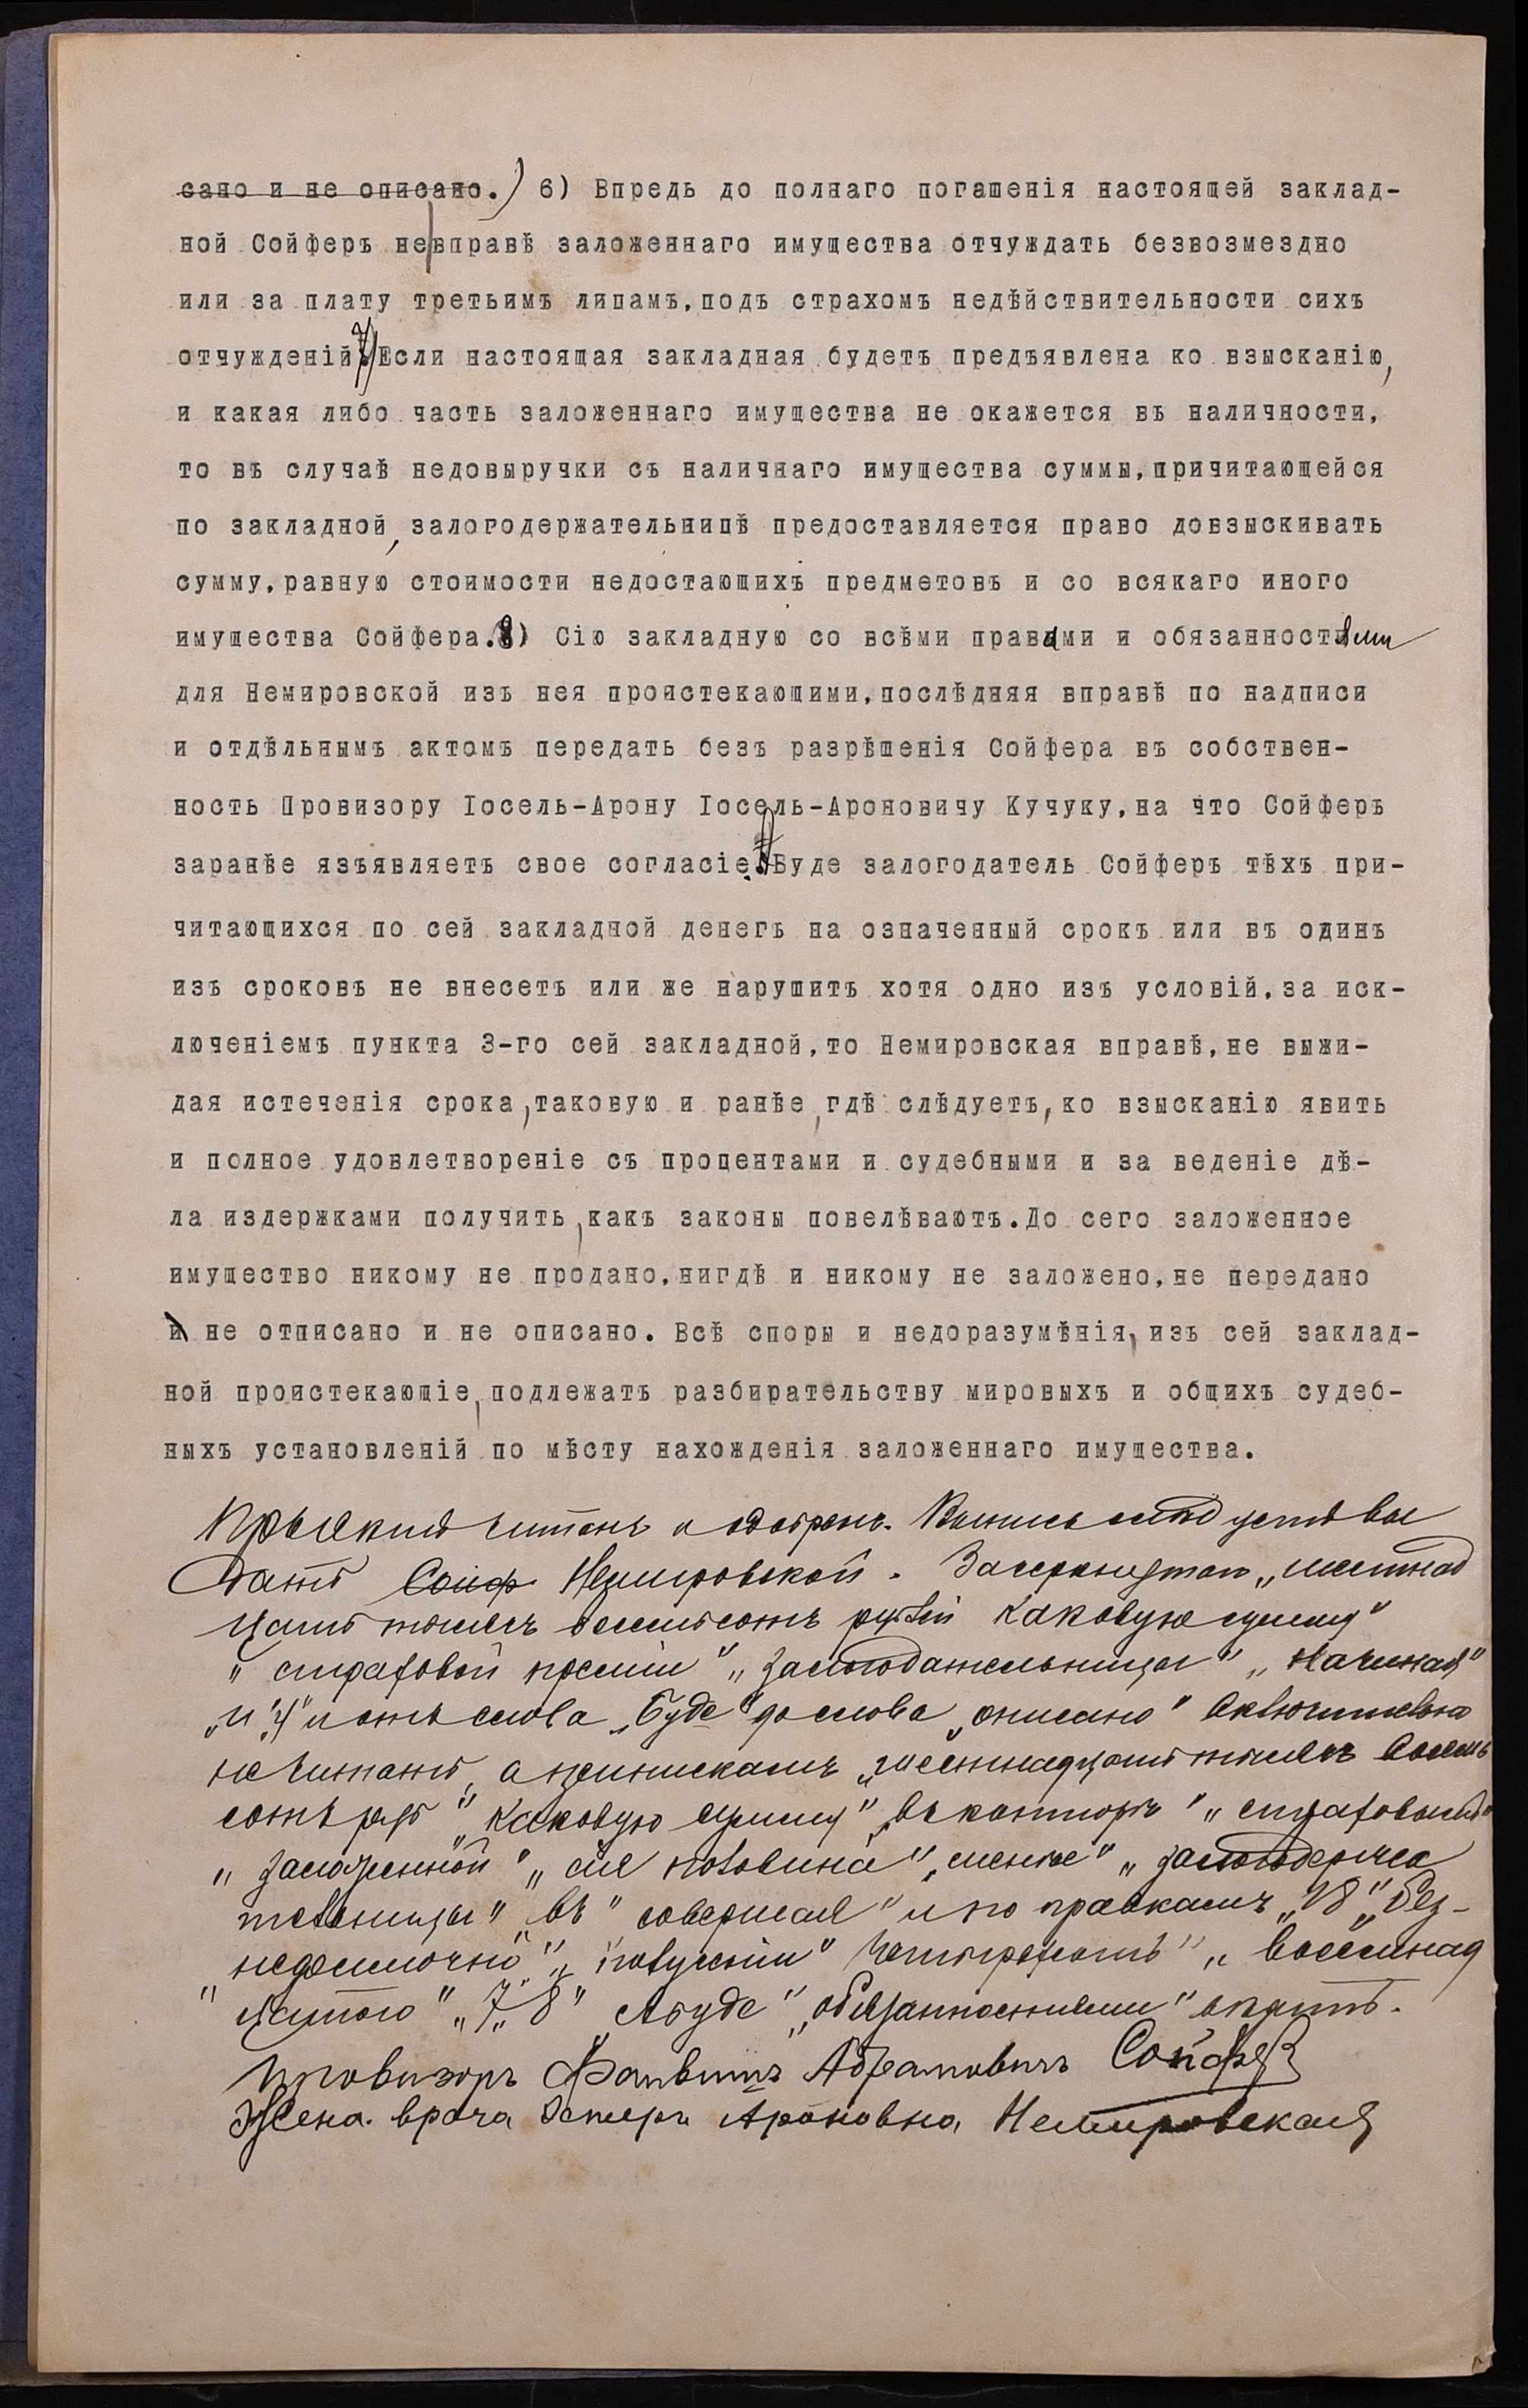 сано и не описано.) 6) Впредь до полнаго погашенія настоящей заклад-
ной Сойферъ не вправѣ заложеннаго имущества отчуждать безвозмездно
или за плату третьимъ липамъ, подъ страхомъ недѣйствительности сихъ
отчужденій 7) Если настоящая закладная будетъ предъявлена ко взысканію,
и какая либо часть заложеннаго имущества не окажется въ наличности,
то въ случаѣ недовыручки съ наличнаго имущества суммы, причитающейся
по закладной, залогодержательницѣ предоставляется право довзыскивать
сумму, равную стоимости недостающихъ предметовъ и со всякаго иного
имущества Сойфера. 8) Сію закладную со всѣми правами и обязанностями
для Немировской изъ нея проистекающими, послѣдняя вправѣ по надписи
и отдѣльнымъ актомъ передать безъ разрѣшенія Сойфера въ собствен-
ность Провизору Іосель-Арону Іосель-Ароновичу Кучуку, на что Сойферъ
заранѣе язъявляетъ свое согласіе. Буде залогодатель Сойферъ тѣхъ при-
читающихся по сей закладной денегъ на означенный срокъ или въ одинъ
изъ сроковъ не внесетъ или же нарушитъ хотя одно изъ условій, за иск-
люченіемъ пункта 3-го сей закладной, то Немировская вправѣ, не выжи-
дая истеченія срока, таковую и ранѣе, гдѣ слѣдуетъ, ко взысканію явить
и полное удовлетвореніе съ процентами и судебными и за веденіе дѣ-
ла издержками получить, какъ законы повелѣваютъ. До сего заложенное
имущество никому не продано, нигдѣ и никому не заложено, не передано
и не отписано и не описано. Всѣ споры и недоразумѣнія, изъ сей заклад-
ной проистекающіе, подлежатъ разбирательству мировыхъ и общихъ судеб-
ныхъ установленій по мѣсту нахожденія заложеннаго имущества.
читанъ и одобренъ. Выпись слѣдуетъ вы
дать Сойф Немировской. Зачеркнутая „шестнад
цать тысячъ восемьсотъ рублей каковую сумму"
„страховой преміи" „залогодательницы" „начиная"
„и" „ч" и отъ слова „Буде" до слова „описано" включительно
не читать, а припискамъ „шестнадцать тысячъ восемь
сотъ руб" „каковую сумму" „въ конторѣ" „страховый"
„заложенной" „ея половина" „менѣе" „залогодержа
тельницы" „въ" совершая" и по правкамъ „18" „Без-
недоимочно" „четырехсотъ" „восемнад
цатого" „7" „8" „Абуде" „обязанностями" вѣрить.
Провизоръ Файвишъ Абрамовичъ Сойферъ
Жена врача Эстеръ Ароновна Немировская